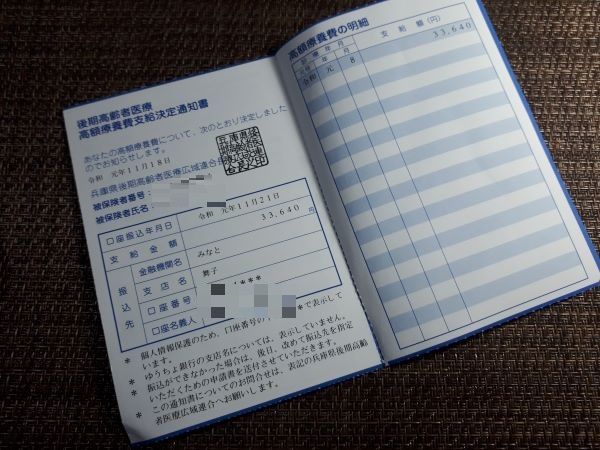 後期高齢者医療
高額療養費支給決定通知書
あなたの高額療養費について、次のとおり決定しました
のでお知らせします。
令和 元年11月18日
兵庫県後期高齢者医療広域連合
被保険者番号:
被保険者氏名:
口座振込年月日 令和 元年11月21日
支給金額 33,640 円
振込先
金融機関名 みなと
支店名 舞子
口座番号 ***
口座名義人
* 個人情報保護のため、口座番号の で表示して
います。
* ゆうちょ銀行の支店名については、表示していません。
* 振込ができなかった場合は、後日、改めて振込先を指定
いただくための申請書を送付させていただきます。
* この通知書についてのお問合せは、表記の兵庫県後期高齢
者医療広域連合へお願いします。
高額療養費の明細
診療年月 支給額(円)
元号 年 月
令和 元 8 33,640